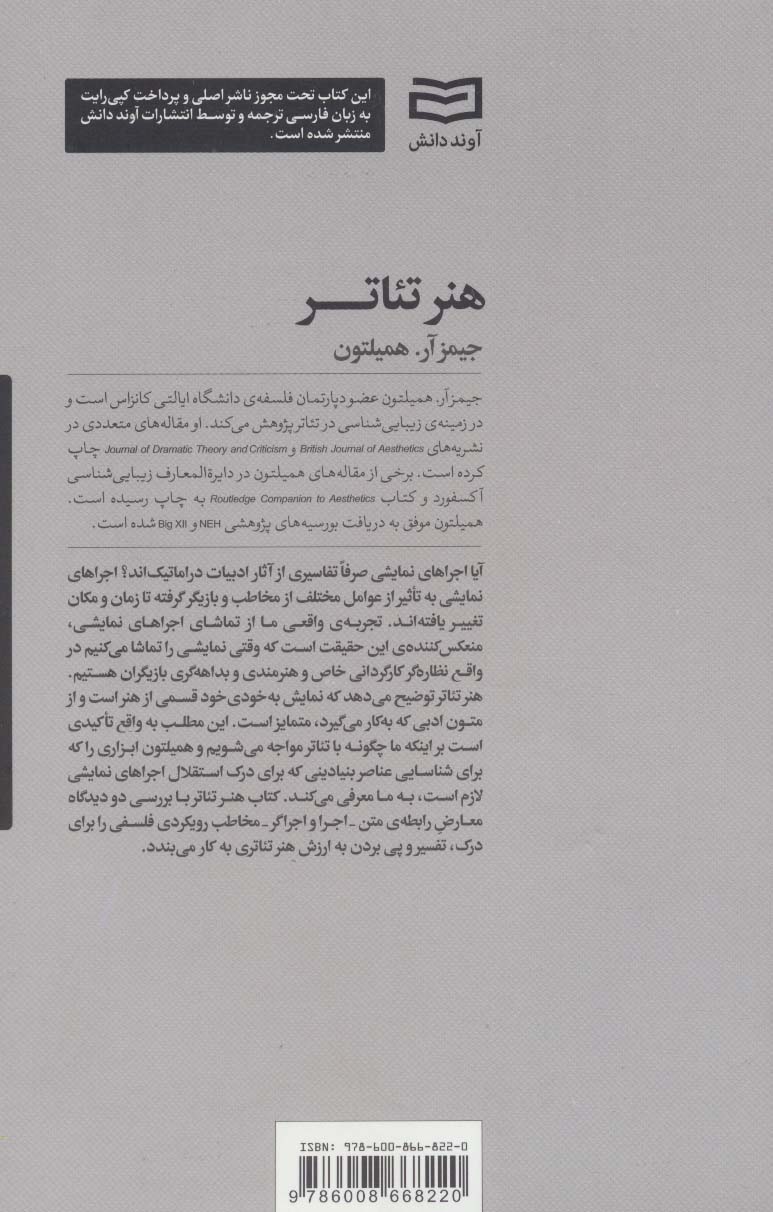 این کتاب تحت مجوز ناشر اصلی و پرداخت کپی‌رایت
به زبان فارسی ترجمه و توسط انتشارات آوند دانش
منتشر شده است.
آوند دانش
هنر تئاتر
جیمز آر. همیلتون
جیمز آر. همیلتون عضو دپارتمان فلسفه‌ی دانشگاه ایالتی کانزاس است و
در زمینه‌ی زیبایی‌شناسی در تئاتر پژوهش می‌کند. او مقاله‌های متعددی در
نشریه‌های British Journal of Aesthetics و Journal of Dramatic Theory and Criticism چاپ
کرده است. برخی از مقاله‌های همیلتون در دایرةالمعارف زیبایی‌شناسی
آکسفورد و کتاب Routledge Companion to Aesthetics به چاپ رسیده است.
همیلتون موفق به دریافت بورسیه‌های پژوهشی NEH و Big XII شده است.
آیا اجراهای نمایشی صرفاً تفاسیری از آثار ادبیات دراماتیک‌اند؟ اجراهای
نمایشی به تأثیر از عوامل مختلف از مخاطب و بازیگر گرفته تا زمان و مکان
تغییر یافته‌اند. تجربه‌ی واقعی ما از تماشای اجراهای نمایشی،
منعکس‌کننده‌ی این حقیقت است که وقتی نمایشی را تماشا می‌کنیم در
واقع نظاره‌گر کارگردانی خاص و هنرمندی و بداهه‌گری بازیگران هستیم.
هنر تئاتر توضیح می‌دهد که نمایش به‌خودی‌خود قسمی از هنر است و از
متون ادبی که به‌کار می‌گیرد، متمایز است. این مطلب به واقع تأکیدی
است بر اینکه ما چگونه با تئاتر مواجه می‌شویم و همیلتون ابزاری را که
برای شناسایی عناصر بنیادینی که برای درک استقلال اجراهای نمایشی
لازم است، به ما معرفی می‌کند. کتاب هنر تئاتر با بررسی دو دیدگاه
معارضِ رابطه‌ی متن ـ اجرا و اجراگر ـ مخاطب رویکردی فلسفی را برای
درک، تفسیر و پی بردن به ارزش هنر تئاتری به کار می‌بندد.
ISBN: 978-600-866-822-0
9 786008 668220